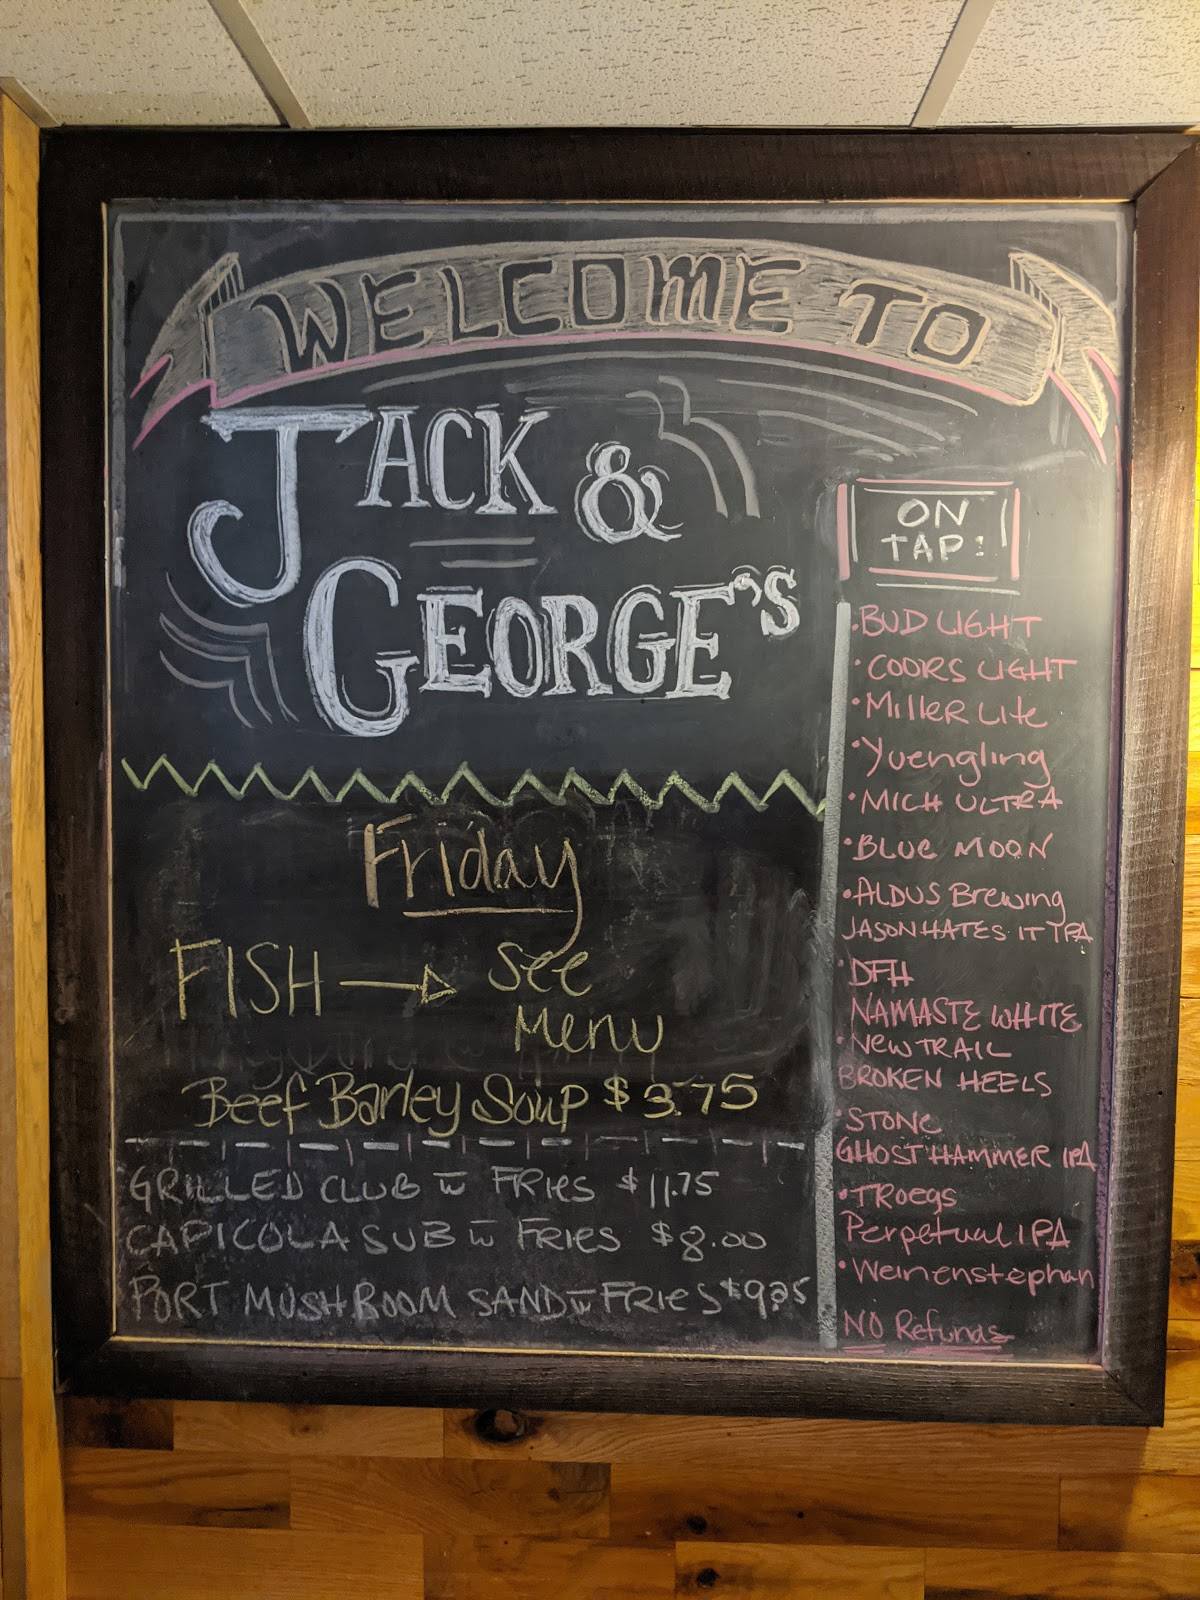 WELCOME TO
JACK &
GEORGE'S
Friday
FISH → See
Menu
Beef Barley Soup $3.75
GRILLED CLUB w FRIES $11.75
CAPICOLA SUB w FRIES $8.00
PORT MUSHROOM SAND w FRIES $9.25
ON
TAP:
• BUD LIGHT
• COORS LIGHT
• Miller Lite
• Yuengling
• MICH ULTRA
• BLUE MOON
• ALDUS Brewing
JASON HATES IT IPA
• DFH
NAMASTE WHITE
• NEW TRAIL
BROKEN HEELS
• STONE
GHOST HAMMER IPA
• TROEGS
Perpetual IPA
• Weinenstephan
NO Refunds